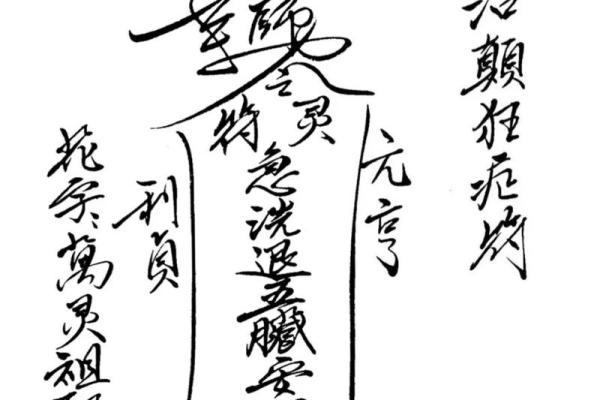 治顛狂症符
元亨
之灵符
急洗退五臟安
利貞
花字萬灵祖